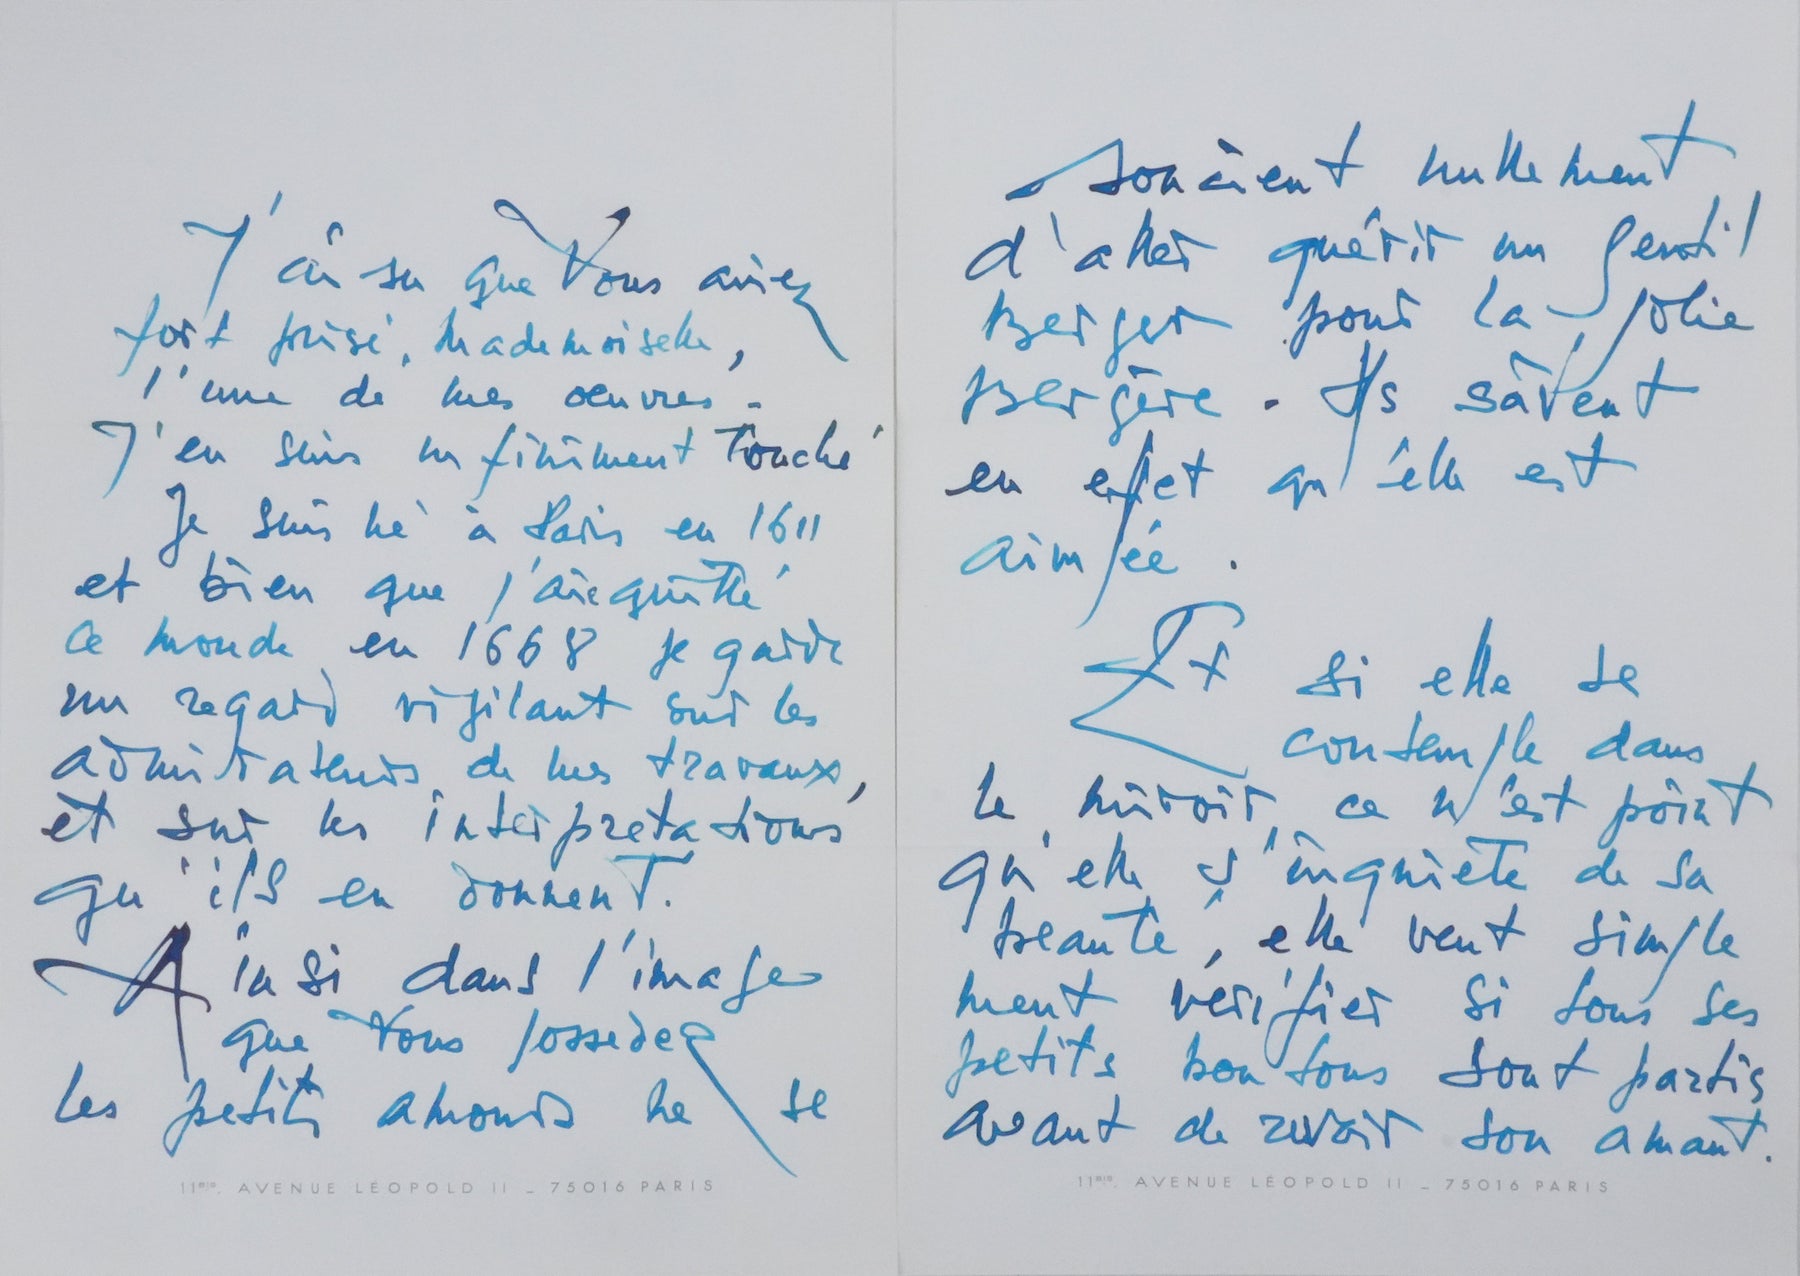 J'ai su que Vous aviez
fort prisé, Mademoiselle,
l'une de mes oeuvres.
J'en suis infiniment touché
Je suis né à Paris en 1611
et bien que j'aie quitté
ce monde en 1668 je garde
un regard vigilant sur les
admirateurs de mes travaux,
et sur les interpretations
qu'ils en donnent.
Ainsi dans l'image
que Vous possedez
les petits amours ne se
11bis, AVENUE LÉOPOLD II _ 75016 PARIS
soucient nullement
d'aller quérir un gentil
Berger pour la jolie
Bergère. Ils savent
en effet qu'elle est
aimée.
Et si elle se
contemple dans
le miroir, ce n'est point
qu'elle s'inquiète de sa
beauté, elle veut simple
ment vérifier si tous ses
petits boutons sont partis
avant de revoir son amant.
11bis, AVENUE LÉOPOLD II _ 75016 PARIS